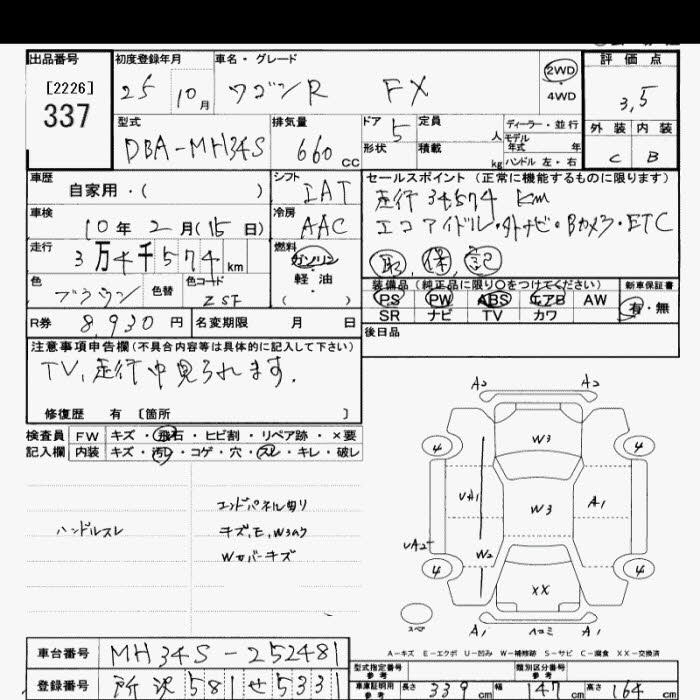 出品番号 初度登録年月 車名・グレード 2WD 評価点
[2226] 25 10月 ワゴンR FX ・ 4WD 3.5
337
型式 排気量 ドア 定員 ディーラー・並行 外装 内装
DBA-MH34S 660cc 5 人 モデル年式 年 C B
形状 積載 kg ハンドル 左・右
車歴 シフト セールスポイント (正常に機能するものに限ります)
自家用・( ) IAT 走行 34574 km
車検 冷房 エコアイドル・外ナビ・Bカメラ・ETC
10年2月(15日) AAC
走行 燃料 取 保 記
3万4千574km ガソリン・軽油( )
色 色替 色コード 装備品 (純正品に限り○をつけてください) 新車保証書
ブラウン ZSF PS PW ABS エアB AW 有・無
SR ナビ TV カワ
R券 8,930円 名変期限 月 日 後日品
注意事項申告欄(不具合内容等は具体的に記入して下さい)
TV,走行中見られます.
修復歴 有 〔箇所 〕
検査員 FW キズ・飛石・ヒビ割・リペア跡・×要
記入欄 内装 キズ・汚れ・コゲ・穴・スレ・キレ・破レ
ハンドルスレ
エンドパネル切り
キズ,E,W3有
Wカバーキズ
A2 A2
4 W3 4
UA1 W3 A1
UA2 W2
4 XX 4
スペア A1 ヘコミ A1
A-キズ E-エクボ U-凹み W-補修跡 S-サビ C-腐食 XX-交換済
車台番号 MH34S-252481
型式指定番号 参考 類別区分番号 参考
登録番号 所沢 581 せ 5331
車庫証明用 参考 長さ 339 cm 幅 147 cm 高さ 164 cm